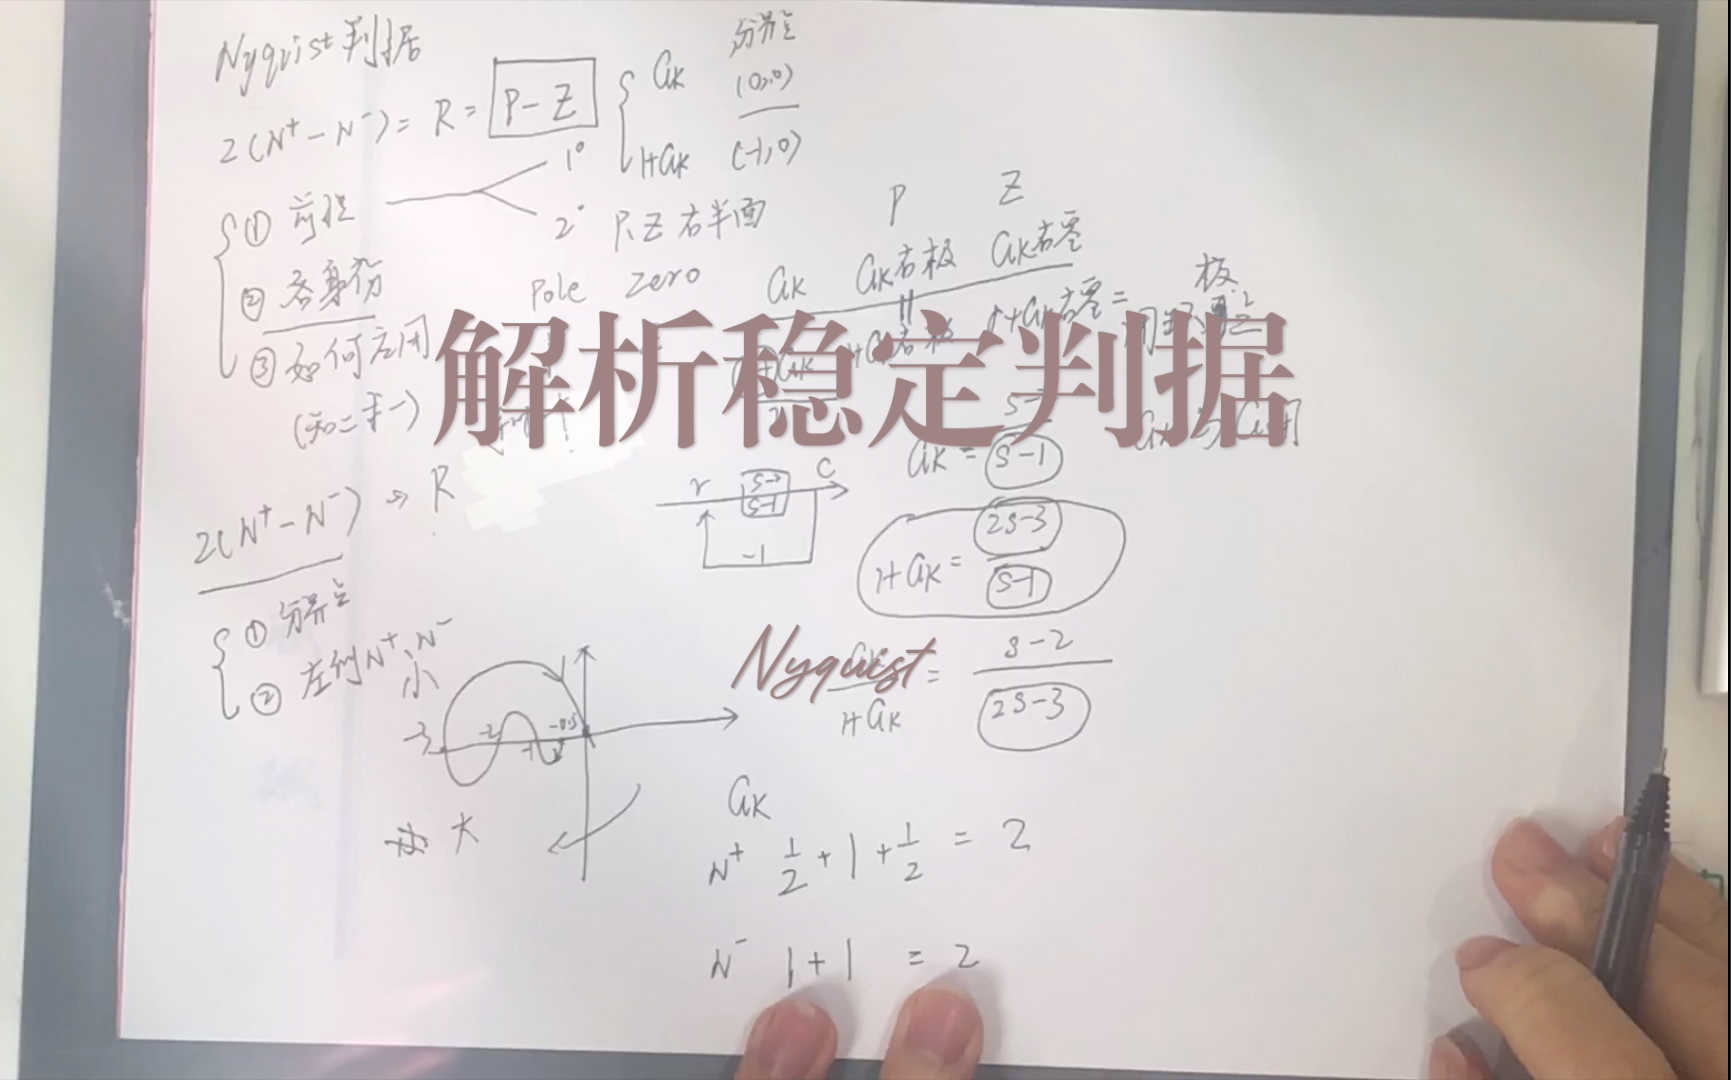 Nyquist判据
2(N⁺-N⁻)= R = P-Z
GK
分界点
(0,0)
1+GK (-1,0)
① 前提
1°
2° P、Z 右半面
② 各身份
③ 如何应用
(知二求一)
Pole Zero
P Z
GK GK右极 GK右零
1+GK右零=
解析稳定判据
Nyquist
2(N⁺-N⁻) → R
① 分界点
② 左侧N⁺、N⁻
小
r C
s-2
s-1
-1
GK = s-1
1+GK = 2s-3
s-1
1+GK
= s-2
2s-3
-3 -2 -1 -0.5
大
GK
N⁺ 1/2 + 1 + 1/2 = 2
N⁻ 1+1 = 2